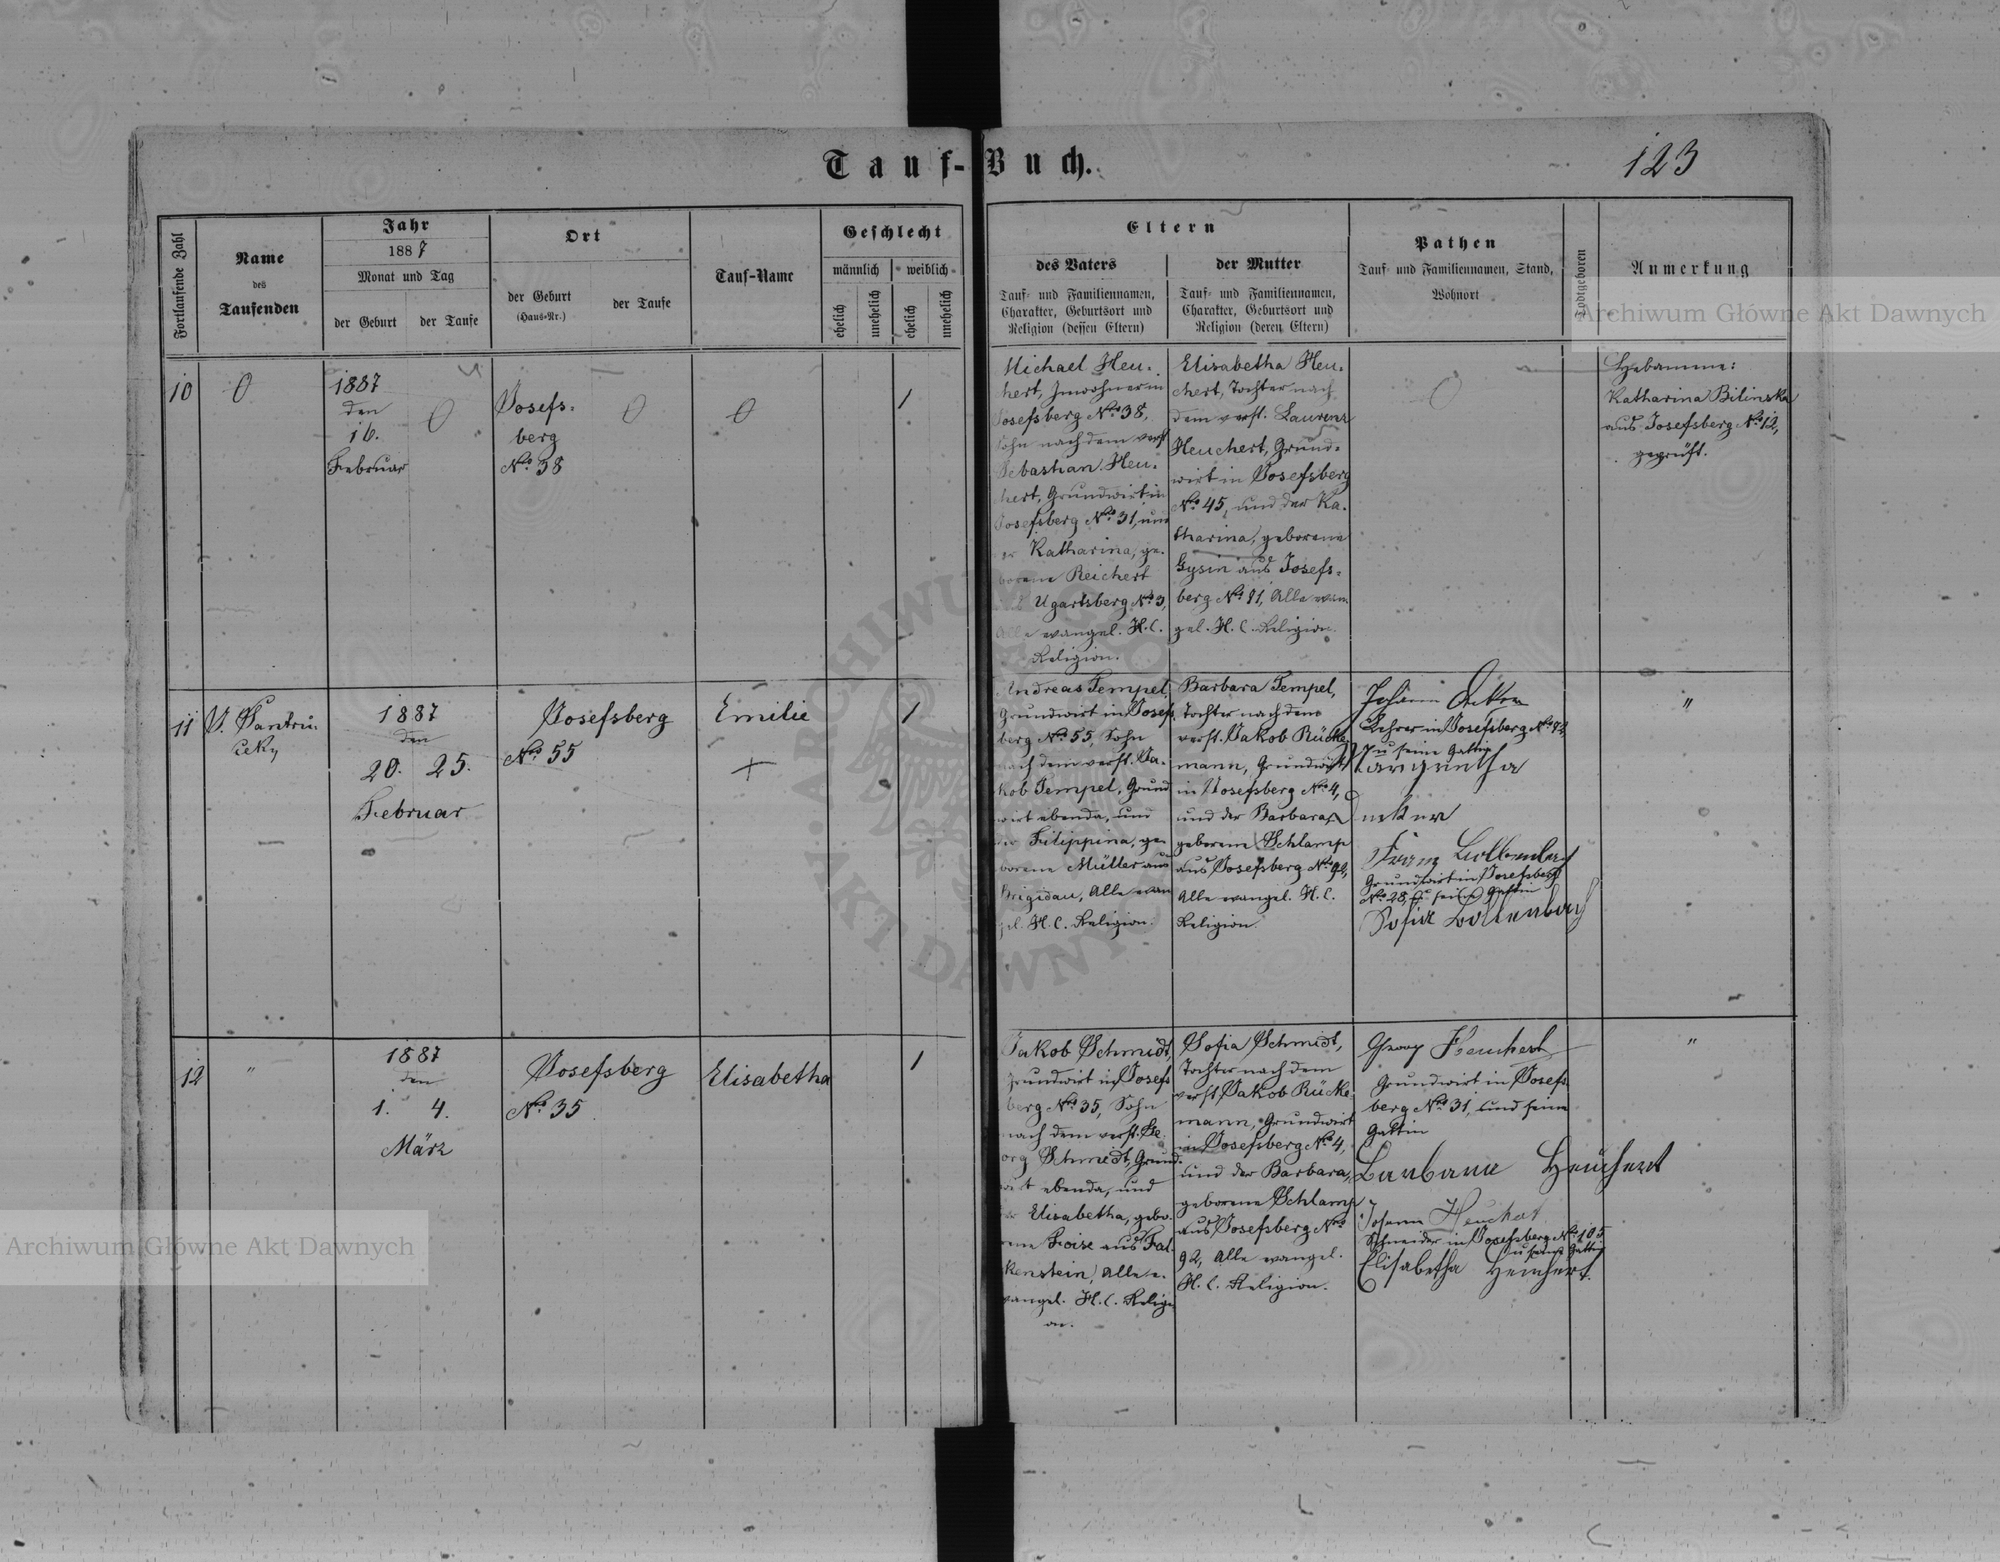 Tauf-Buch.
123
Fortlaufende Zahl
Name
des
Taufenden
Jahr
1887
Monat und Tag
der Geburt
der Taufe
Ort
der Geburt
(Haus-Nr.)
der Taufe
Tauf-Name
Geschlecht
männlich
weiblich
ehelich
unehelich
ehelich
unehelich
Eltern
des Vaters
Tauf- und Familiennamen,
Charakter, Geburtsort und
Religion (dessen Eltern)
der Mutter
Tauf- und Familiennamen,
Charakter, Geburtsort und
Religion (deren Eltern)
Pathen
Tauf- und Familiennamen, Stand,
Wohnort
Todtgeboren
Anmerkung
10
0
1887
den
16.
Februar
0
Josefs-
berg
No 38
0
0
1
Michael Heu-
chert, Inwohner in
Josefsberg No 38,
Sohn nach dem verst.
Sebastian Heu-
chert, Grundwirt in
Josefsberg No 31, und
der Katharina, ge-
borene Reichert
Ugartsberg No 3,
Alle evangel. H. C.
Religion.
Elisabetha Heu-
chert, Tochter nach
dem verst. Laurenz
Heuchert, Grund-
wirt in Josefsberg
No 45, und der Ka-
tharina, geborene
Gysin aus Josefs-
berg No 81, Alle evan-
gel. H. C. Religion.
0
Hebamme:
Katharina Bilinska
aus Josefsberg No 12,
geprüft.
11
1887
den
20. 25.
Februar
Josefsberg
No 55
Emilie
+
1
Andreas Tempel,
Grundwirt in Josefs-
berg No 55, Sohn
nach dem verst. Ja-
kob Tempel, Grund-
wirt ebenda, und
der Filippina, ge-
borene Müller aus
Brigidau, Alle evan-
gel. H. C. Religion.
Barbara Tempel,
Tochter nach dem
verst. Jakob Rücke-
mann, Grundwirt
in Josefsberg No 4,
und der Barbara,
geborene Schlamp
aus Josefsberg No 92,
Alle evangel. H. C.
Religion.
Johann
Lehrer in Josefsberg No 72,
u seine Gattin
Margaretha
Franz Bollenbach
Grundwirt in Josefsberg
No 28, u seine Gattin
Sofia Bollenbach
"
12
"
1887
den
1. 4.
März
Josefsberg
No 35
Elisabetha
1
Jakob Schmidt,
Grundwirt in Josefs-
berg No 35, Sohn
nach dem verst. Ge-
org Schmidt, Grund-
wirt ebenda, und
der Elisabetha, gebo-
rene aus Fal-
kenstein, Alle e-
vangel. H. C. Religi-
on.
Sofia Schmidt,
Tochter nach dem
verst. Jakob Rücke-
mann, Grundwirt
in Josefsberg No 4,
und der Barbara,
geborene Schlamp
aus Josefsberg No
92, Alle evangel.
H. C. Religion.
Georg Heuchert
Grundwirt in Josefs-
berg No 31, und seine
Gattin
Barbara Heuchert
Johann Heuchert
Schneider in Josefsberg No 105
u seine Gattin
Elisabetha Heuchert.
"
Archiwum Główne Akt Dawnych
Archiwum Główne Akt Dawnych